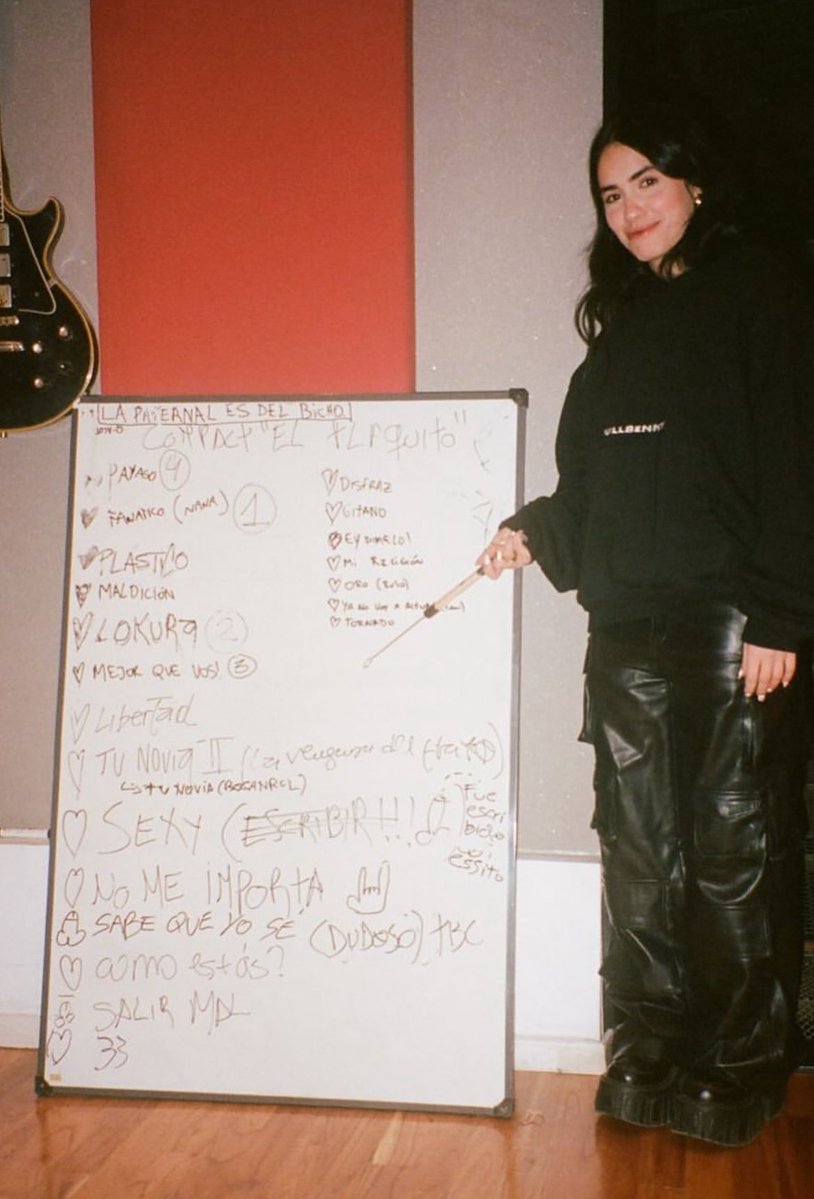 LA PATERNAL ES DEL BICHO
COMPACT "EL FLAQUITO"
PAYASO 4
FANATICO (NANA) 1
PLASTICO
MALDICIÓN
LOKURA 2
MEJOR QUE VOS! 3
Libertad
TU NOVIA II (La venganza del
↳ TU NOVIA (ROCANROL)
SEXY (ESCRIBIR!!!
Fue
escri
bieló
essito
NO ME IMPORTA
SABE QUE YO SÉ (DUDOSO) TBC
como estás?
SALIR MAL
33
DISFRAZ
GITANO
EY DIMELO!
Mi RELIGIÓN
ORO
YA NO VOY A
TORNADO